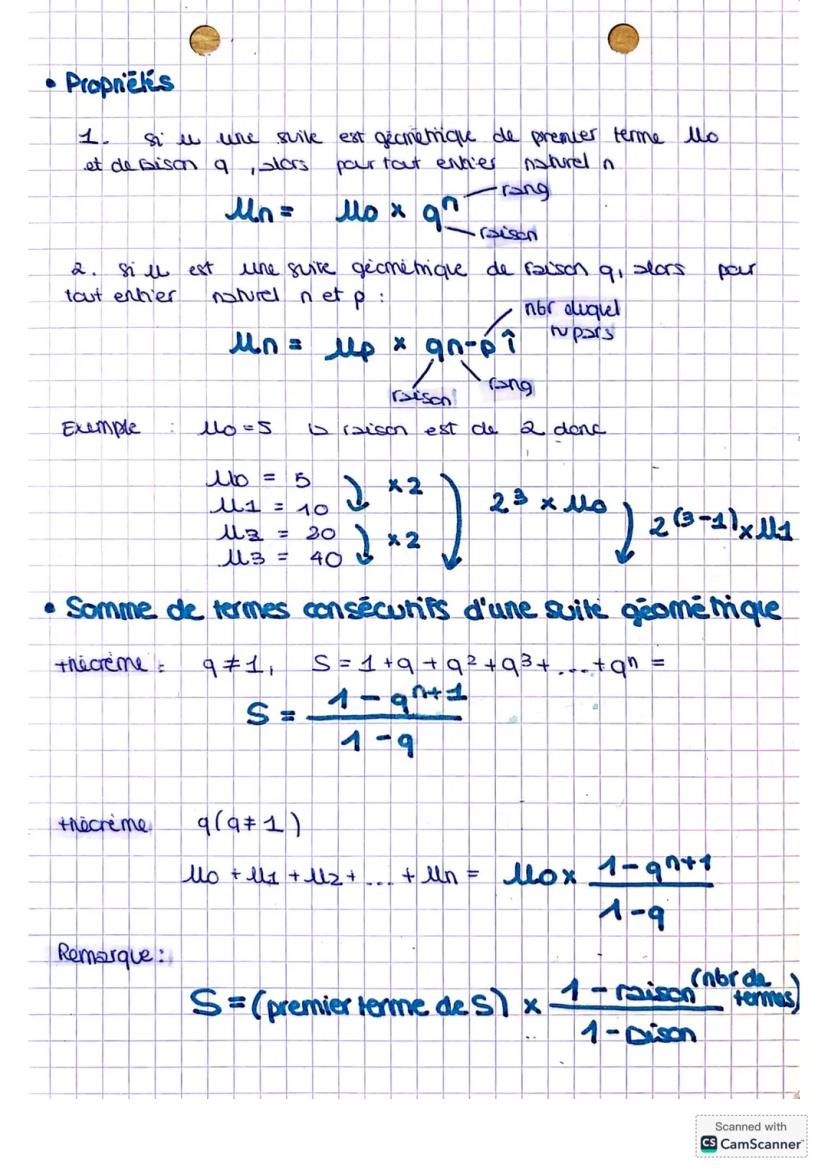 • Propriétés
1. Si u une suite est géométrique de premier terme u0
et de raison q, alors pour tout entier naturel n
rang
un = u0 x q^n
raison
2. Si u est une suite géométrique de raison q, alors pour
tout entier naturel n et p :
nbr duquel
tu pars
un = up x qn-p ↑
raison rang
Exemple : u0 = 5 la raison est de 2 donc
u0 = 5
u1 = 10
u2 = 20
u3 = 40
x2
x2
2^3 x u0
2^(3-1) x u1
• Somme de termes consécutifs d'une suite géométrique
théorème : q ≠ 1, S = 1 + q + q^2 + q^3 + ... + q^n =
S = (1 - q^n+1) / (1 - q)
théorème q (q ≠ 1)
u0 + u1 + u2 + ... + un = u0 x (1 - q^n+1) / (1 - q)
Remarque :
S = (premier terme de S) x (1 - raison^(nbr de termes)) / (1 - raison)
Scanned with
CS CamScanner